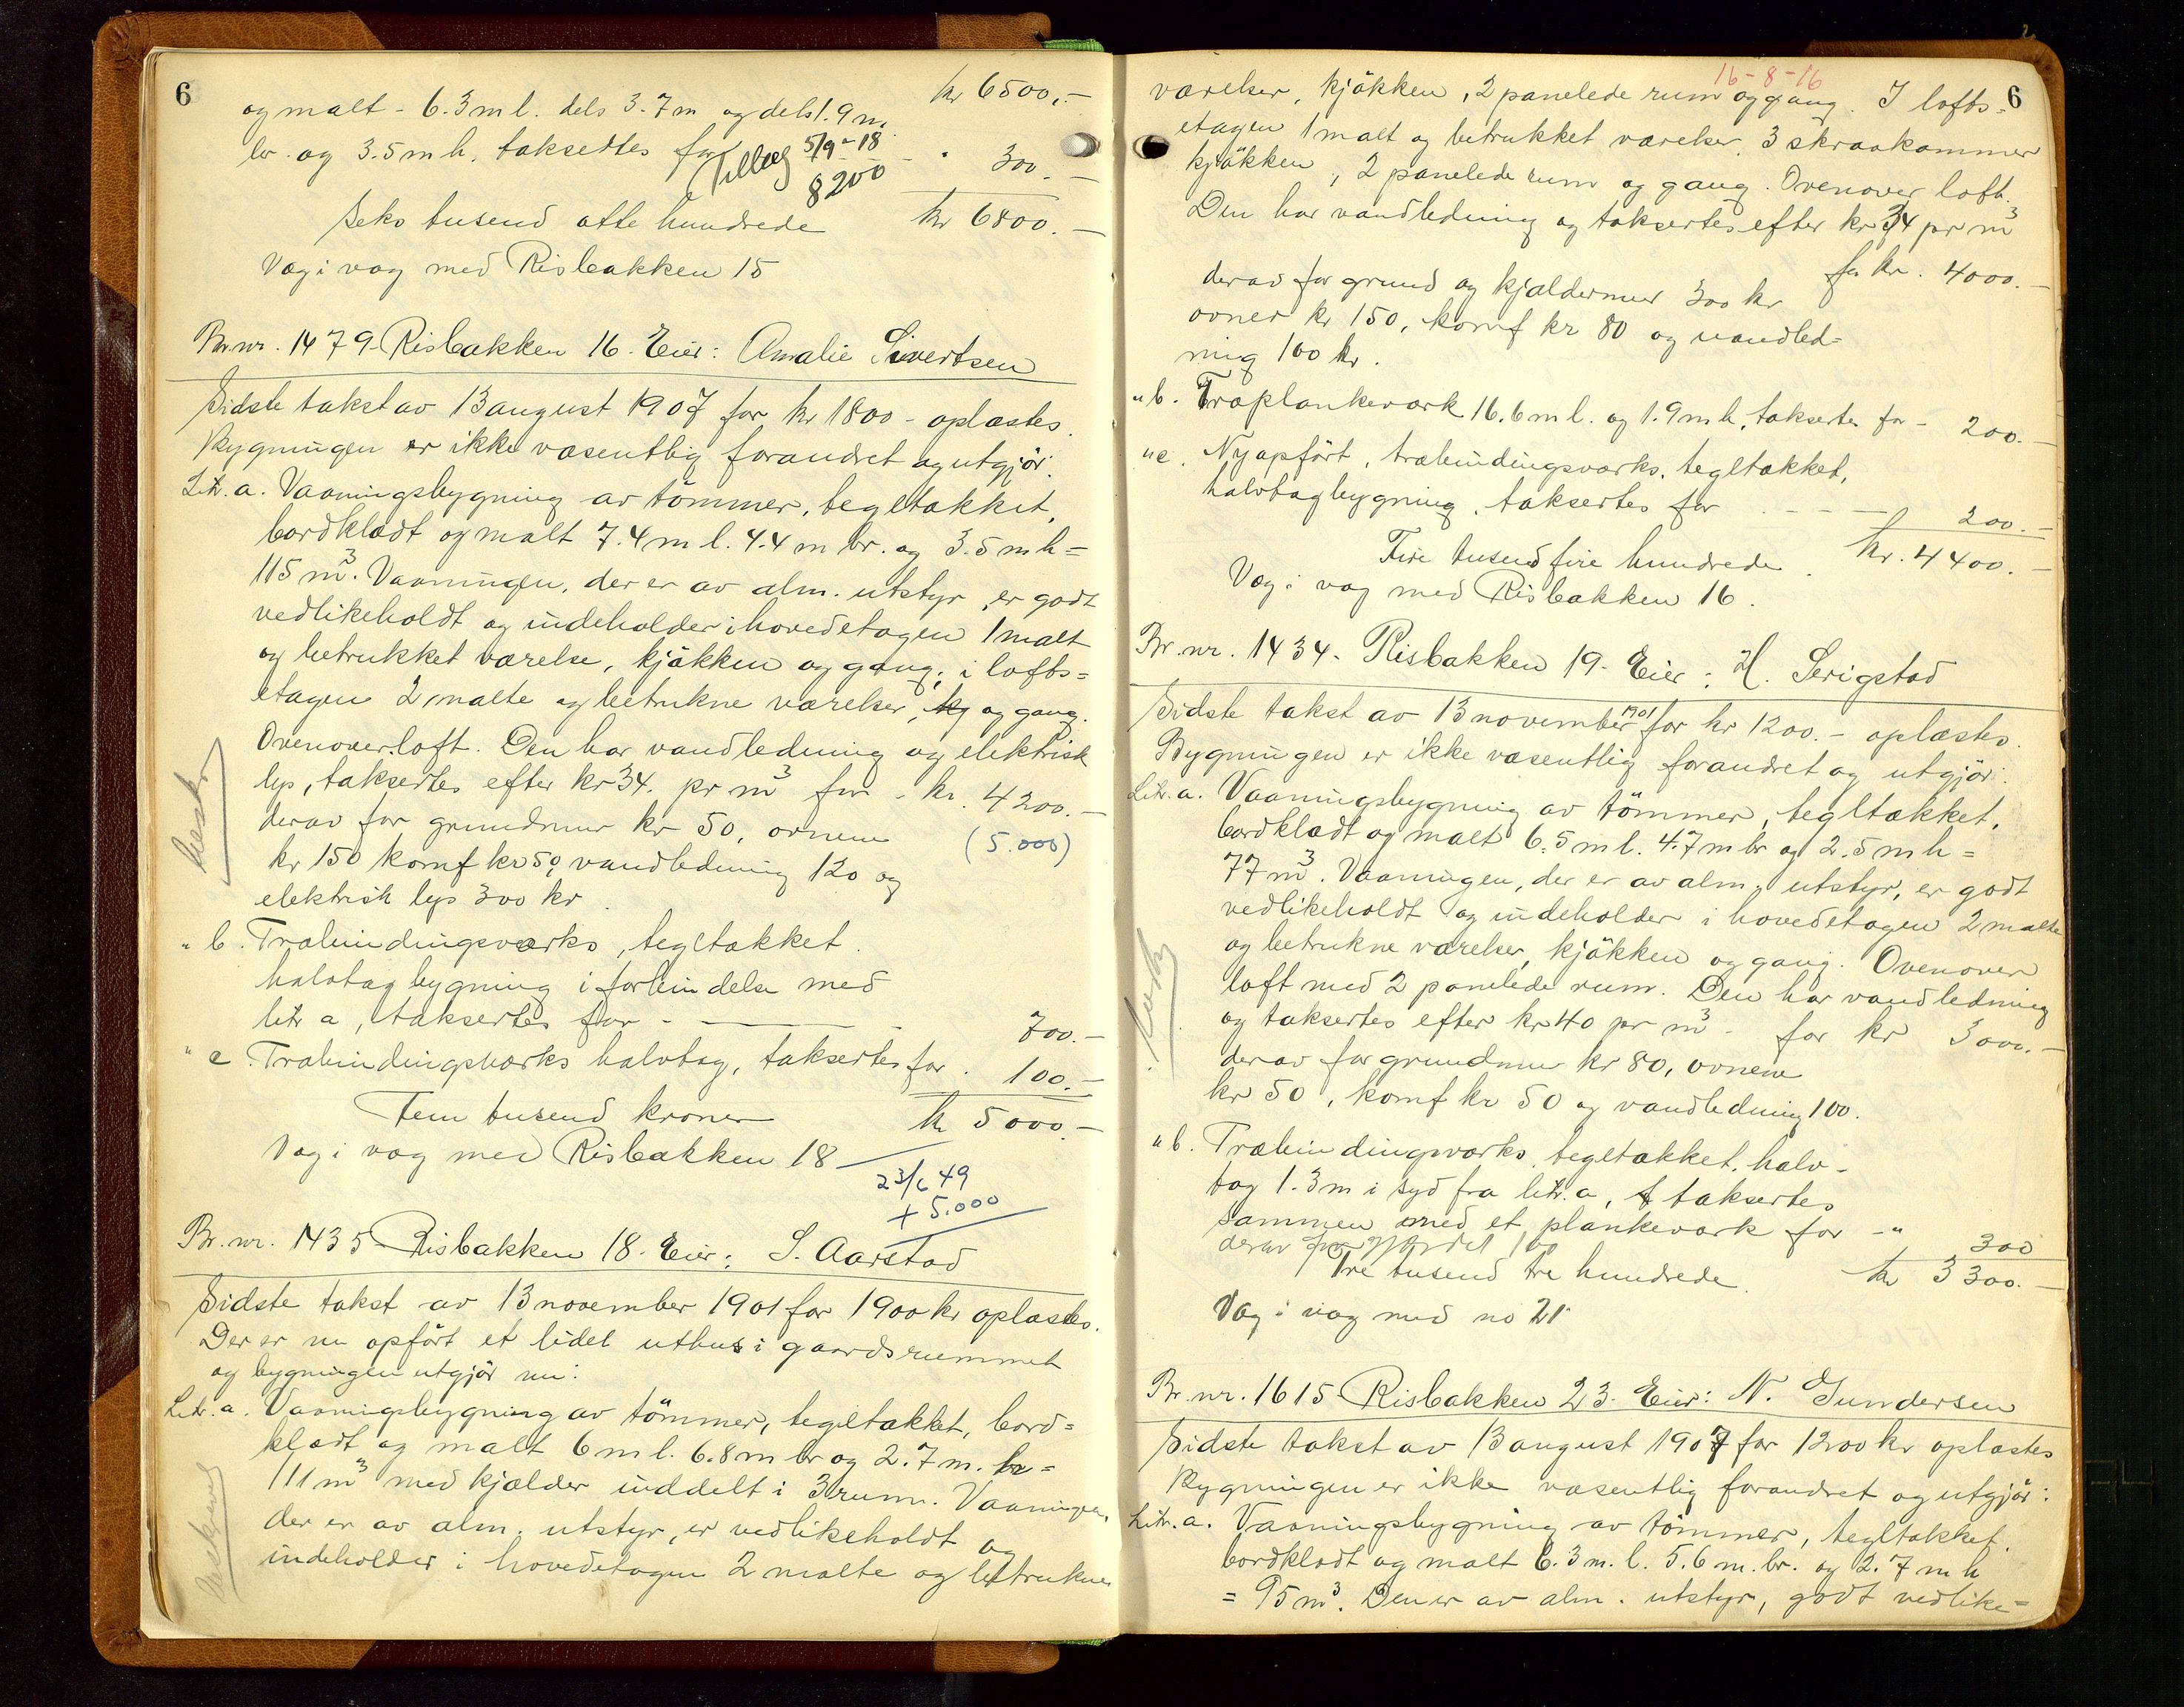 6
kr 6500,-
og malt - 6.3 m l. dels 3.7 m og dels 1.9 m.
br. og 3.5 m h. taksertes for - - - " 300.-
Tillæg 5/9-18
8200
Seks tusend otte hundrede kr 6800.-
Væg i væg med Risbakken 15
Br.nr. 1479 - Risbakken 16. Eier: Amalie Sivertsen
Sidste takst av 13 august 1907 for kr 1800 - oplæstes.
Bygningen er ikke væsentlig forandret og utgjör:
Litr. a. Vaaningsbygning av tömmer, tegltækket,
bordklædt og malt 7.4 m l. 4.4 m br. og 3.5 m h =
115 m³. Vaaningen, der er av alm. utstyr, er godt
vedlikeholdt og indeholder i hovedetagen 1 malt
og betrukket værelse, kjökken og gang; i lofts=
etagen 2 malte og betrukne værelser, kj og gang.
Ovenover loft. Den har vandledning og elektrisk
lys, taksertes efter kr 34. pr m³ for - kr. 4200.-
derav for grundmur kr 50, ovnene (5.000)
kr 150 komf kr 50, vandledning 120 og
elektrisk lys 300 kr.
" b. Træbindingsverks, tegltækket.
halvtagbygning i forbindelse med
litr a, taksertes for - - - 700.-
" c. Træbindingsværks halvtag, taksertes for. 100.-
Fem tusend kroner kr 5000.-
Væg i væg med Risbakken 18
23/6 49
+ 5.000
Br. nr. 1435 - Risbakken 18. Eier: S. Aarstad
Sidste takst av 13 november 1901 for 1900 kr oplæstes.
Der er nu opfört et lidet uthus i gaardsrummet
og bygningen utgjör nu:
Litr. a. Vaaningsbygning av tömmer, tegltækket, bord=
klædt og malt 6 m l. 6.8 m br og 2.7 m. h =
111 m³ med kjælder inddelt i 3 rum. Vaaningen,
der er av alm. utstyr, er vedlikeholdt og
indeholder i hovedetagen 2 malte og betrukne
16-8-16
6
værelser, kjökken, 2 panelede rum og gang. I lofts=
etagen 1 malt og betrukket værelser, 3 skraakammer
kjökken, 2 panelede rum og gang. Ovenover loft.
Den har vandledning og taksertes efter kr 34 pr m³
for kr. 4000.-
derav for grund og kjældermur 300 kr
ovner kr 150, komf kr 80 og vandled=
ning 100 kr.
" b. Træplankeværk 16.6 m l. og 1.9 m h, taksertes for - 200.-
" c. Nyopfört, træbindingsværks, tegltækket,
halvtagbygning, taksertes for - - - 200.-
Fire tusend fire hundrede. kr. 4400.-
Væg i væg med Risbakken 16.
Br. nr. 1434. Risbakken 19. Eier: H. Serigstad
Sidste takst av 13 november 1901 for kr 1200.- oplæstes.
Bygningen er ikke væsentlig forandret og utgjör:
Litr. a. Vaaningsbygning av tömmer, tegltækket,
bordklædt og malt 6.5 m l. 4.7 m br og 2.5 m h =
77 m³. Vaaningen, der er av alm. utstyr, er godt
vedlikeholdt og indeholder i hovedetagen 2 malte
og betrukne værelser, kjökken og gang. Ovenover
loft med 2 panelede rum. Den har vandledning
og taksertes efter kr 40 pr m³ - for kr 3000.-
derav for grundmur kr 80, ovnene
kr 50, komf kr 50 og vandledning 100.
" b. Træbindingsværks, tegltækket, halv-
tag 1.3 m i syd fra litr. a, taksertes
sammen med et plankeværk for - " 300
Tre tusend tre hundrede kr 3300.-
Væg i væg med no 21
Br. nr. 1615 - Risbakken 23. Eier: N. Gundersen
Sidste takst av 13 august 1907 for 1200 kr oplæstes
Bygningen er ikke væsentlig forandret og utgjör:
Litr. a. Vaaningsbygning av tömmer, tegltækket.
bordklædt og malt 6.3 m. l. 5.6 m. br. og 2.7 m h
= 95 m³. Den er av alm. utstyr, godt vedlike=